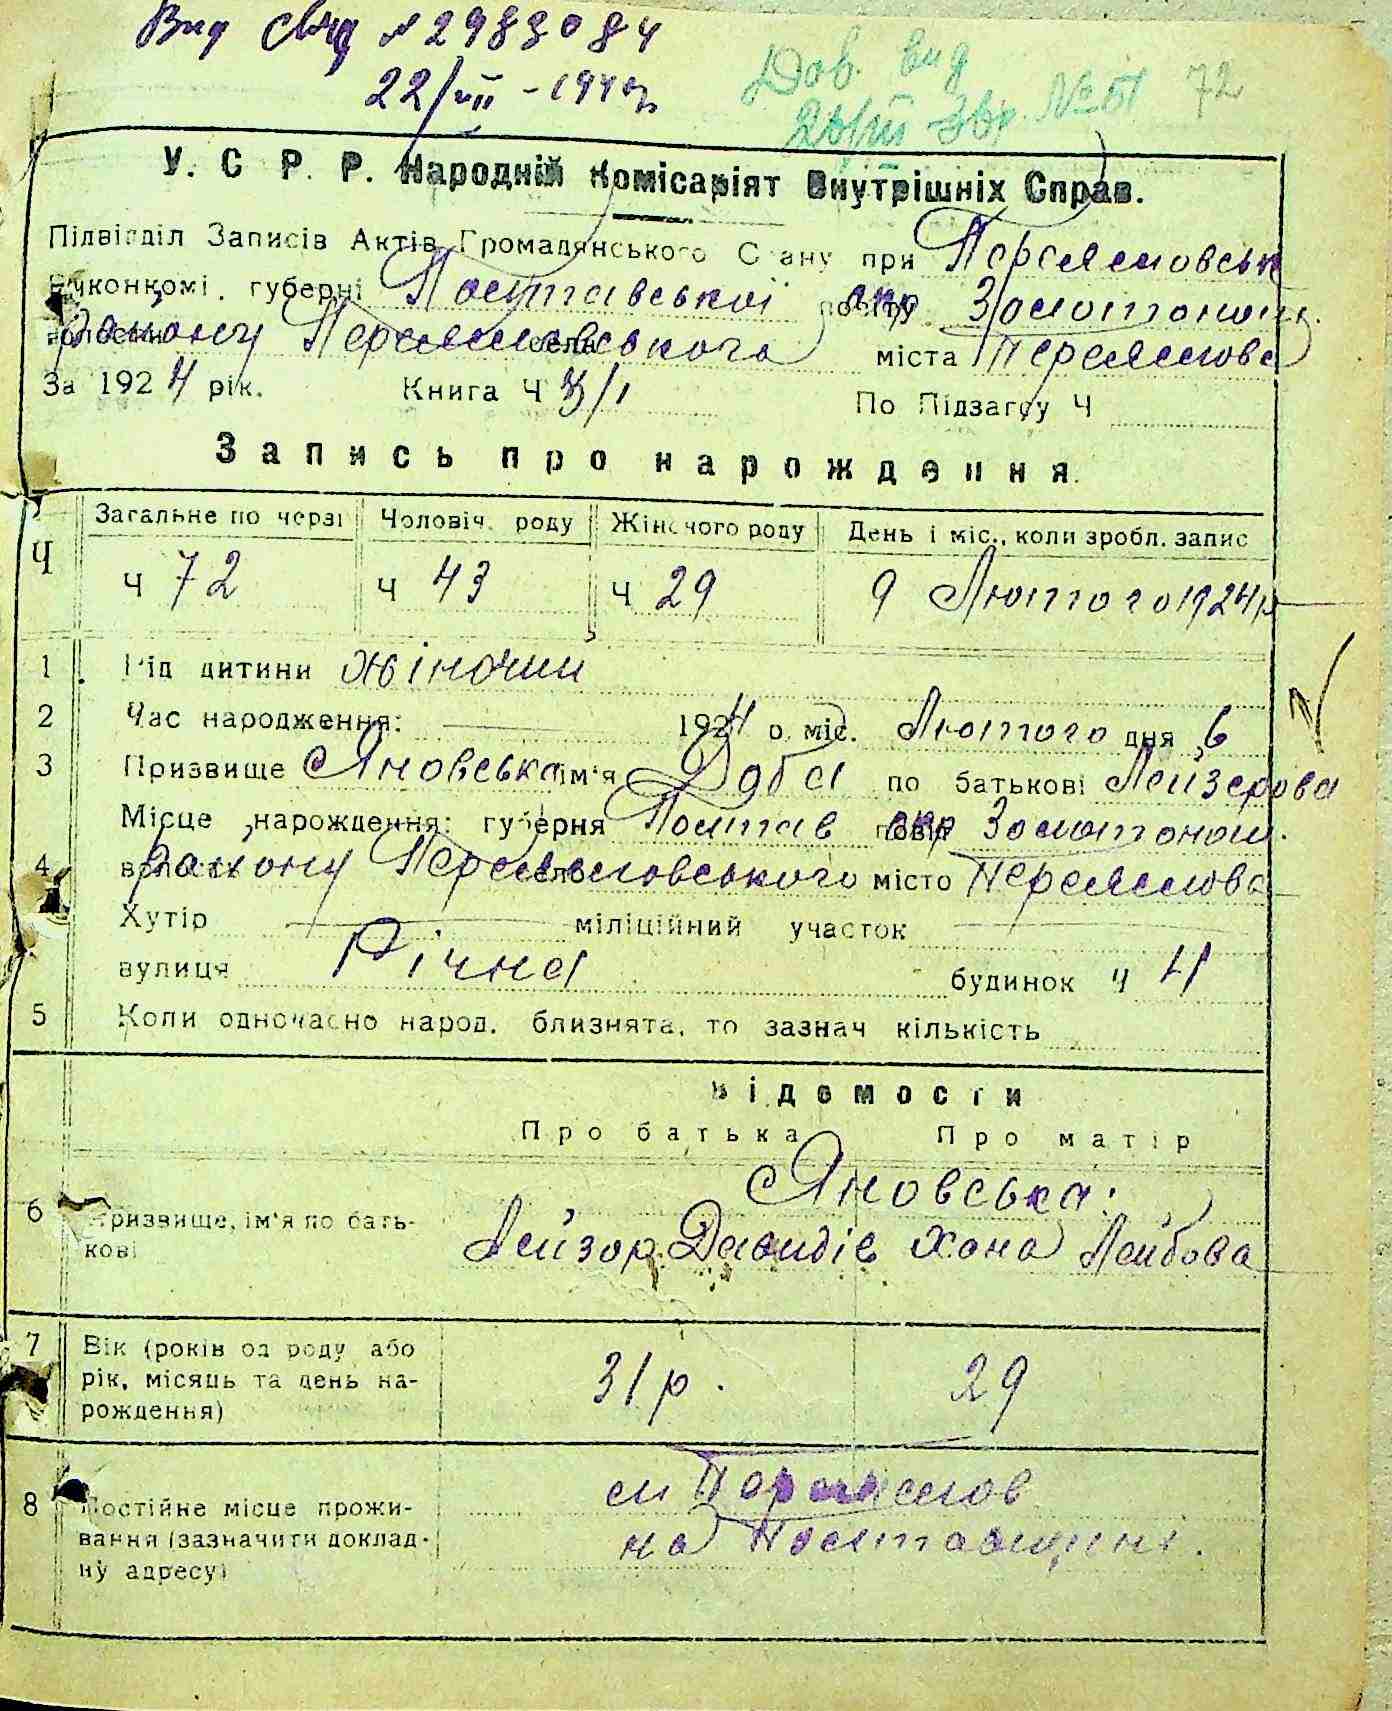 Вид свід № 2983084
22/VII - 194 р.
Дов. вид
№ 51 72
У. С Р. Р. Народній Комісаріят Внутрішніх Справ.
Підвідділ Записів Актів Громадянського Стану при Переяславськ
Виконкомі, губерні Полтавської повіту окр Золотонош.
волости району Переяславського села міста Переяслова
За 1924 рік. Книга Ч 3/1 По Підзагсу Ч
Запись про нарождення.
Ч Загальне по черзі Чоловіч. роду Жіночого роду День і міс., коли зробл. запис
ч 72 ч 43 ч 29 9 Лютого 1924 р
1 Рід дитини жіночий
2 Час народження: 1924 р. міс. Лютого дня 6
3 Призвище Яновська ім'я Доба по батькові Лейзерова
Місце нарождення: губерня Полтав повіт окр Золотонош.
4 волость району Переясловського село місто Переяслова
Хутір міліційний участок
вулиця Річна будинок ч 4
5 Коли одночасно народ. близнята, то зазнач кількість
Відомости
Про батька Про матір
Яновська:
6 Призвище, ім'я по бать-
кові Лейзор Давидів Хана Лейбова
7 Вік (років од роду або
рік, місяць та день на-
рождення) 31 р. 29
8 Постійне місце прожи-
вання (зазначити доклад-
ну адресу)
м Переяслов
на Полтавщині.